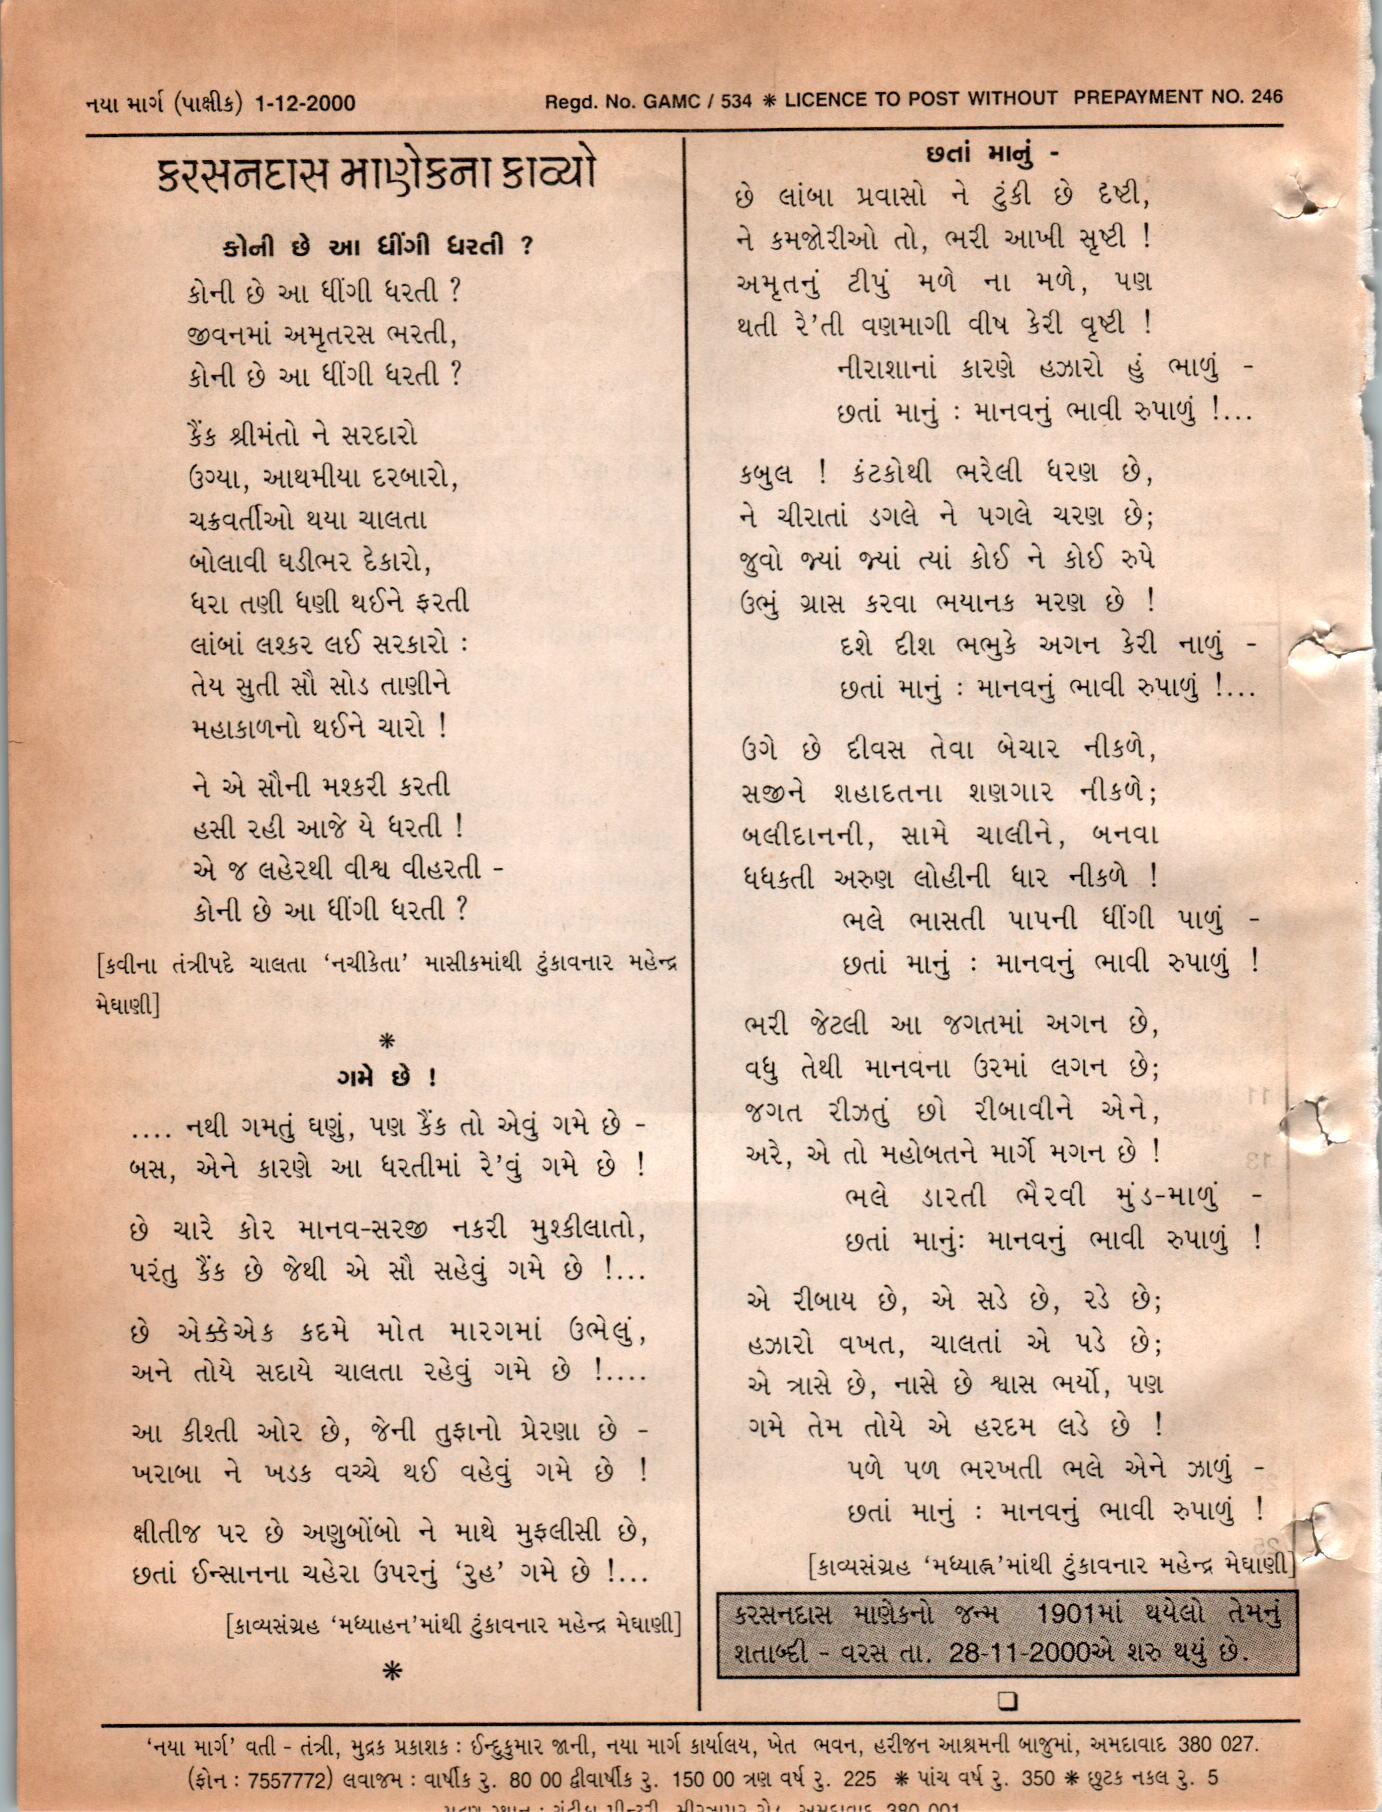 નયા માર્ગ (પાક્ષીક) 1-12-2000
Regd. No. GAMC / 534 ❋ LICENCE TO POST WITHOUT PREPAYMENT NO. 246
કરસનદાસ માણેકના કાવ્યો
કોની છે આ ધીંગી ધરતી ?
કોની છે આ ધીંગી ધરતી ?
જીવનમાં અમૃતરસ ભરતી,
કોની છે આ ધીંગી ધરતી ?
કૈંક શ્રીમંતો ને સરદારો
ઉગ્યા, આથમીયા દરબારો,
ચક્રવર્તીઓ થયા ચાલતા
બોલાવી ઘડીભર દેકારો,
ધરા તણી ધણી થઈને ફરતી
લાંબાં લશ્કર લઈ સરકારો :
તેય સુતી સૌ સોડ તાણીને
મહાકાળનો થઈને ચારો !
ને એ સૌની મશ્કરી કરતી
હસી રહી આજે યે ધરતી !
એ જ લહેરથી વીશ્વ વીહરતી -
કોની છે આ ધીંગી ધરતી ?
[કવીના તંત્રીપદે ચાલતા ‘નચીકેતા’ માસીકમાંથી ટુંકાવનાર મહેન્દ્ર
મેઘાણી]
❋
ગમે છે !
.... નથી ગમતું ઘણું, પણ કૈંક તો એવું ગમે છે -
બસ, એને કારણે આ ધરતીમાં રે’વું ગમે છે !
છે ચારે કોર માનવ-સરજી નકરી મુશ્કીલાતો,
પરંતુ કૈંક છે જેથી એ સૌ સહેવું ગમે છે !...
છે એક્કેએક કદમે મોત મારગમાં ઉભેલું,
અને તોયે સદાયે ચાલતા રહેવું ગમે છે !....
આ કીશ્તી ઓર છે, જેની તુફાનો પ્રેરણા છે -
ખરાબા ને ખડક વચ્ચે થઈ વહેવું ગમે છે !
ક્ષીતીજ પર છે અણુબોંબો ને માથે મુફલીસી છે,
છતાં ઈન્સાનના ચહેરા ઉપરનું ‘રુહ’ ગમે છે !...
[કાવ્યસંગ્રહ ‘મધ્યાહન’માંથી ટુંકાવનાર મહેન્દ્ર મેઘાણી]
❋
છતાં માનું -
છે લાંબા પ્રવાસો ને ટુંકી છે દૃષ્ટી,
ને કમજોરીઓ તો, ભરી આખી સૃષ્ટી !
અમૃતનું ટીપું મળે ના મળે, પણ
થતી રે’તી વણમાગી વીષ કેરી વૃષ્ટી !
નીરાશાનાં કારણે હઝારો હું ભાળું -
છતાં માનું : માનવનું ભાવી રુપાળું !...
કબુલ ! કંટકોથી ભરેલી ધરણ છે,
ને ચીરાતાં ડગલે ને પગલે ચરણ છે;
જુવો જ્યાં જ્યાં ત્યાં કોઈ ને કોઈ રુપે
ઉભું ગ્રાસ કરવા ભયાનક મરણ છે !
દશે દીશ ભભુકે અગન કેરી નાળું -
છતાં માનું : માનવનું ભાવી રુપાળું !...
ઉગે છે દીવસ તેવા બેચાર નીકળે,
સજીને શહાદતના શણગાર નીકળે;
બલીદાનની, સામે ચાલીને, બનવા
ધધકતી અરુણ લોહીની ધાર નીકળે !
ભલે ભાસતી પાપની ધીંગી પાળું -
છતાં માનું : માનવનું ભાવી રુપાળું !
ભરી જેટલી આ જગતમાં અગન છે,
વધુ તેથી માનવના ઉરમાં લગન છે;
જગત રીઝતું છો રીબાવીને એને,
અરે, એ તો મહોબતને માર્ગે મગન છે !
ભલે ડારતી ભૈરવી મુંડ-માળું -
છતાં માનું: માનવનું ભાવી રુપાળું !
એ રીબાય છે, એ સડે છે, રડે છે;
હઝારો વખત, ચાલતાં એ પડે છે;
એ ત્રાસે છે, નાસે છે શ્વાસ ભર્યો, પણ
ગમે તેમ તોયે એ હરદમ લડે છે !
પળે પળ ભરખતી ભલે એને ઝાળું -
છતાં માનું : માનવનું ભાવી રુપાળું !
[કાવ્યસંગ્રહ ‘મધ્યાહ્ન’માંથી ટુંકાવનાર મહેન્દ્ર મેઘાણી]
કરસનદાસ માણેકનો જન્મ 1901માં થયેલો તેમનું
શતાબ્દી - વરસ તા. 28-11-2000એ શરુ થયું છે.
‘નયા માર્ગ’ વતી - તંત્રી, મુદ્રક પ્રકાશક : ઈન્દુકુમાર જાની, નયા માર્ગ કાર્યાલય, ખેત ભવન, હરીજન આશ્રમની બાજુમાં, અમદાવાદ 380 027.
(ફોન : 7557772) લવાજમ : વાર્ષીક રુ. 80 00 દ્વીવાર્ષીક રુ. 150 00 ત્રણ વર્ષ રુ. 225 ❋ પાંચ વર્ષ રુ. 350 ❋ છુટક નકલ રુ. 5